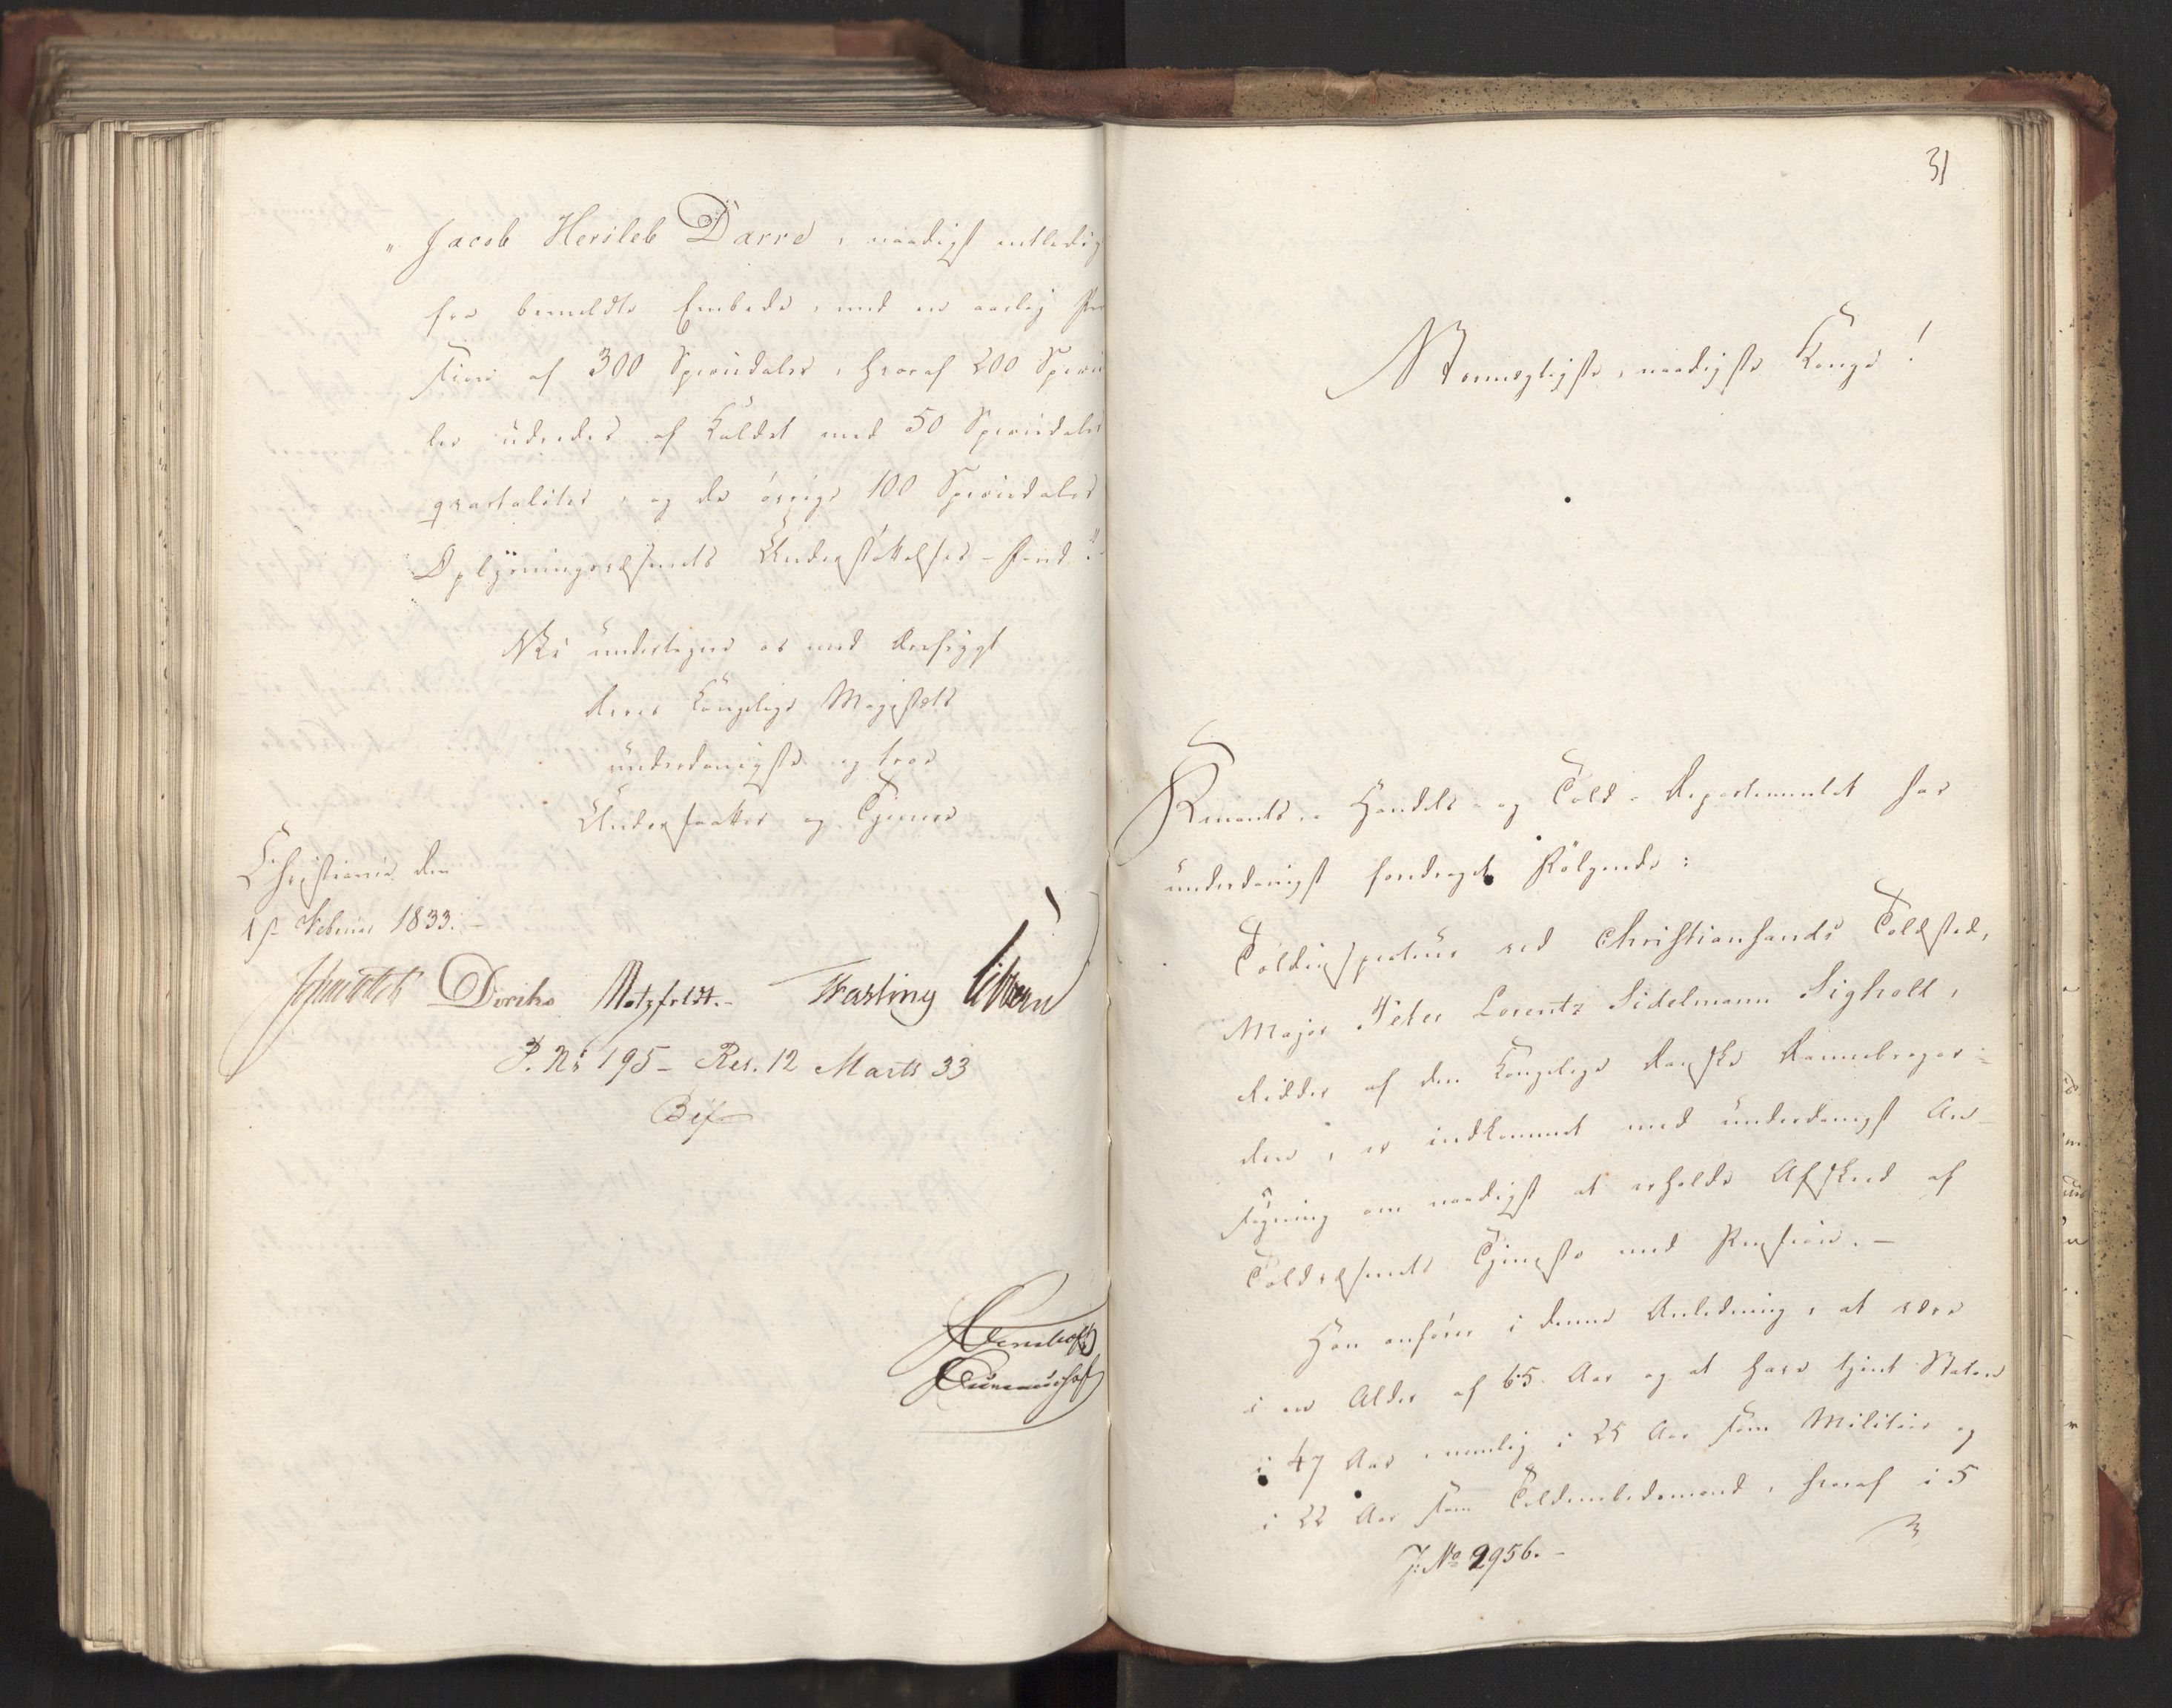 "Jacob Hersleb Darre, naadigst entledig
fra bemeldte Embede, med en aarlig Pen
sion af 300 Speciedaler, hvoraf 200 Specie
ler udredes af Kaldet med 50 Speciedaler
qvartaliter, og de övrige 100 Speciedaler
Oplysningsvæsenets Understöttelses-Fond."
Vi undertegne os med Ærefrygt
Deres Kongelige Majestæts
underdanigste og troe
Undersaatter og Tjenere
Christiania den
1ste Februar 1833.
Diriks Motzfeldt. Fasting Sibbern
P. No 195 - Res. 12 Marts 33
31
Stormægtigste, naadigste Konge!
Finants-, Handels- og Told-Departementet har
underdanigst foredraget Fölgende:
Toldinspecteur ved Christiansands Toldsted,
Major Peter Lorentz Sidelmann Sigholt,
Ridder af den Kongelige Danske Dannebroger-
den, er indkommet med underdanigst An-
sögning om naadigst at erholde Afsked af
Toldvæsenets Tjeneste med Pension. -
Han anförer i denne Anledning, at være
i en Alder af 65 Aar og at have tjent Staten
i 47 Aar, nemlig i 25 Aar som Militair og
i 22 Aar som Toldembedsmand, hvoraf i 5
J: No 2956. -